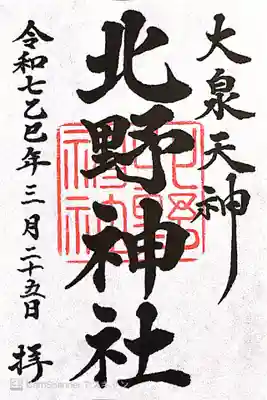 大泉天神
北野神社
北野神社
令和七乙巳年三月二十五日 拝
CamScanner